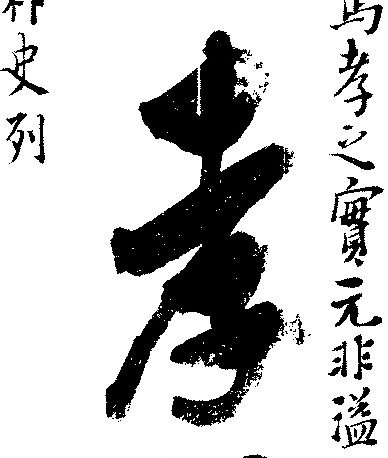 孝之實元非溢
孝
史列